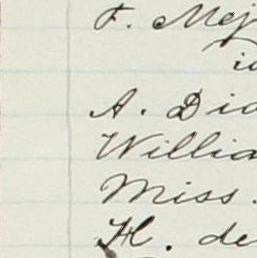 F. Mej
i
A. Dia
Willia
Miss.
H. de